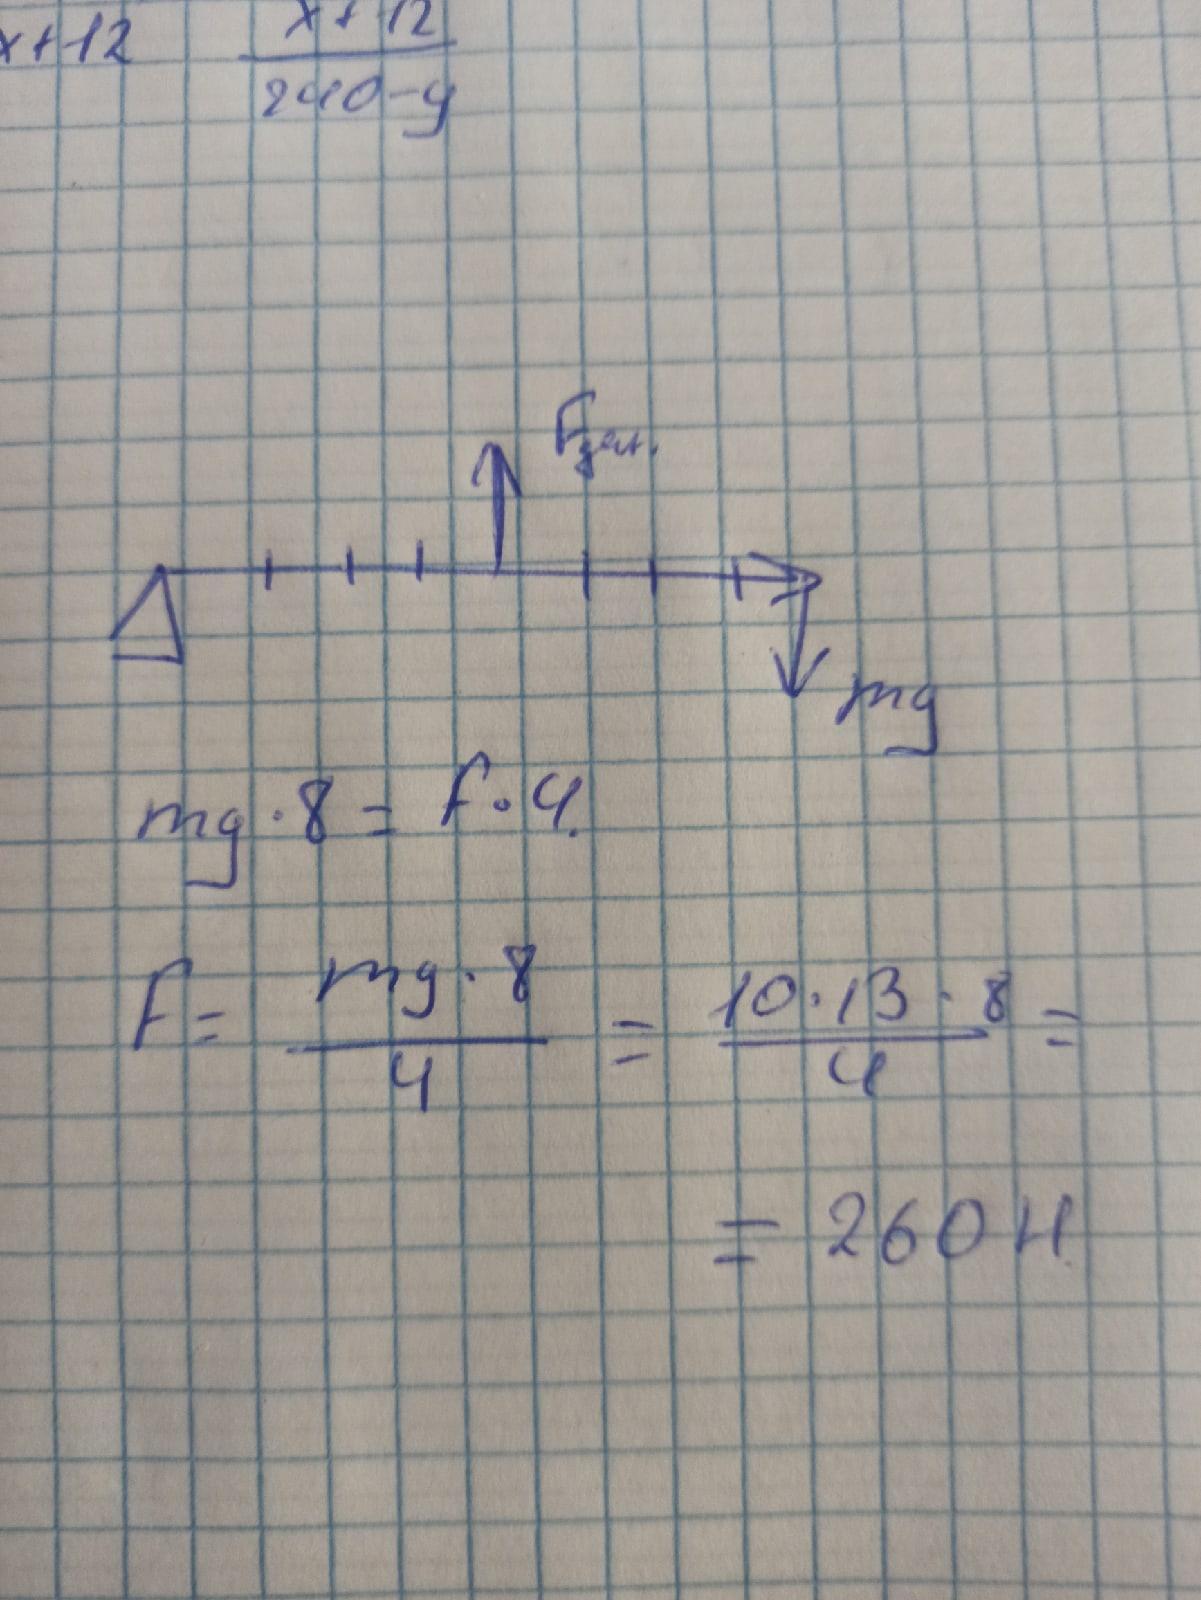 x+12 x+12
240-y
F
mg
mg · 8 = F · 4.
F = mg · 8 / 4 = 10 · 13 · 8 / 4 =
= 260 Н.